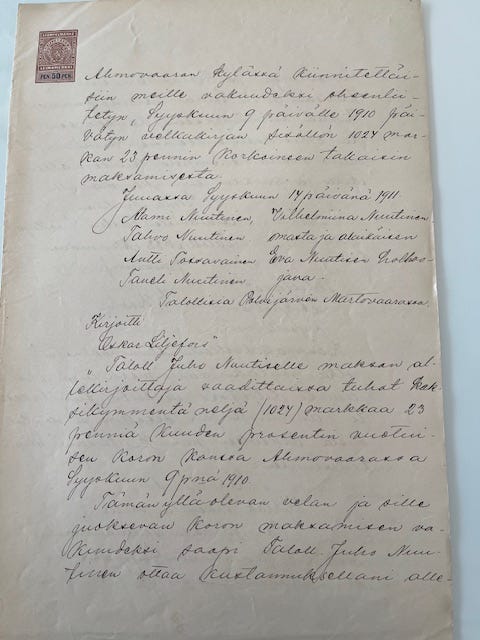 PEN. 50 PEN.
Ahmovaaran kylässä kiinnitettäi-
siin meille vakuudeksi oheenlii-
tetyn, Syyskuun 9 päivälle 1910 päi-
vätyn velkakirjan sisällön 1024 mar-
kan 23 pennin korkoineen takaisin
maksamisesta.
Juuassa Syyskuun 14 päivänä 1911.
Nuutinen, Vilhelmina Nuutinen
Tahvo Nuutinen omasta ja alaikäisen
Antti Tossavainen Eva Nuutisen holhoo-
Taneli Nuutinen jana.
Talollisia Polvijärven Martovaarassa
Kirjoitti
Oskar Liljefors"
"Taloll Juho Nuutiselle maksan al-
lekirjoittaja vaadittaissa tuhat kak-
sikymmentä neljä (1024) markkaa 23
penniä kuuden prosentin vuotui-
sen koron kanssa Ahmovaarassa
Syyskuun 9 pnä 1910
Tämän ylläolevan velan ja sille
juoksevan koron maksamisen va-
kuudeksi saapi Taloll. Juho Nuu-
tinen ottaa kustannuksellani alle-